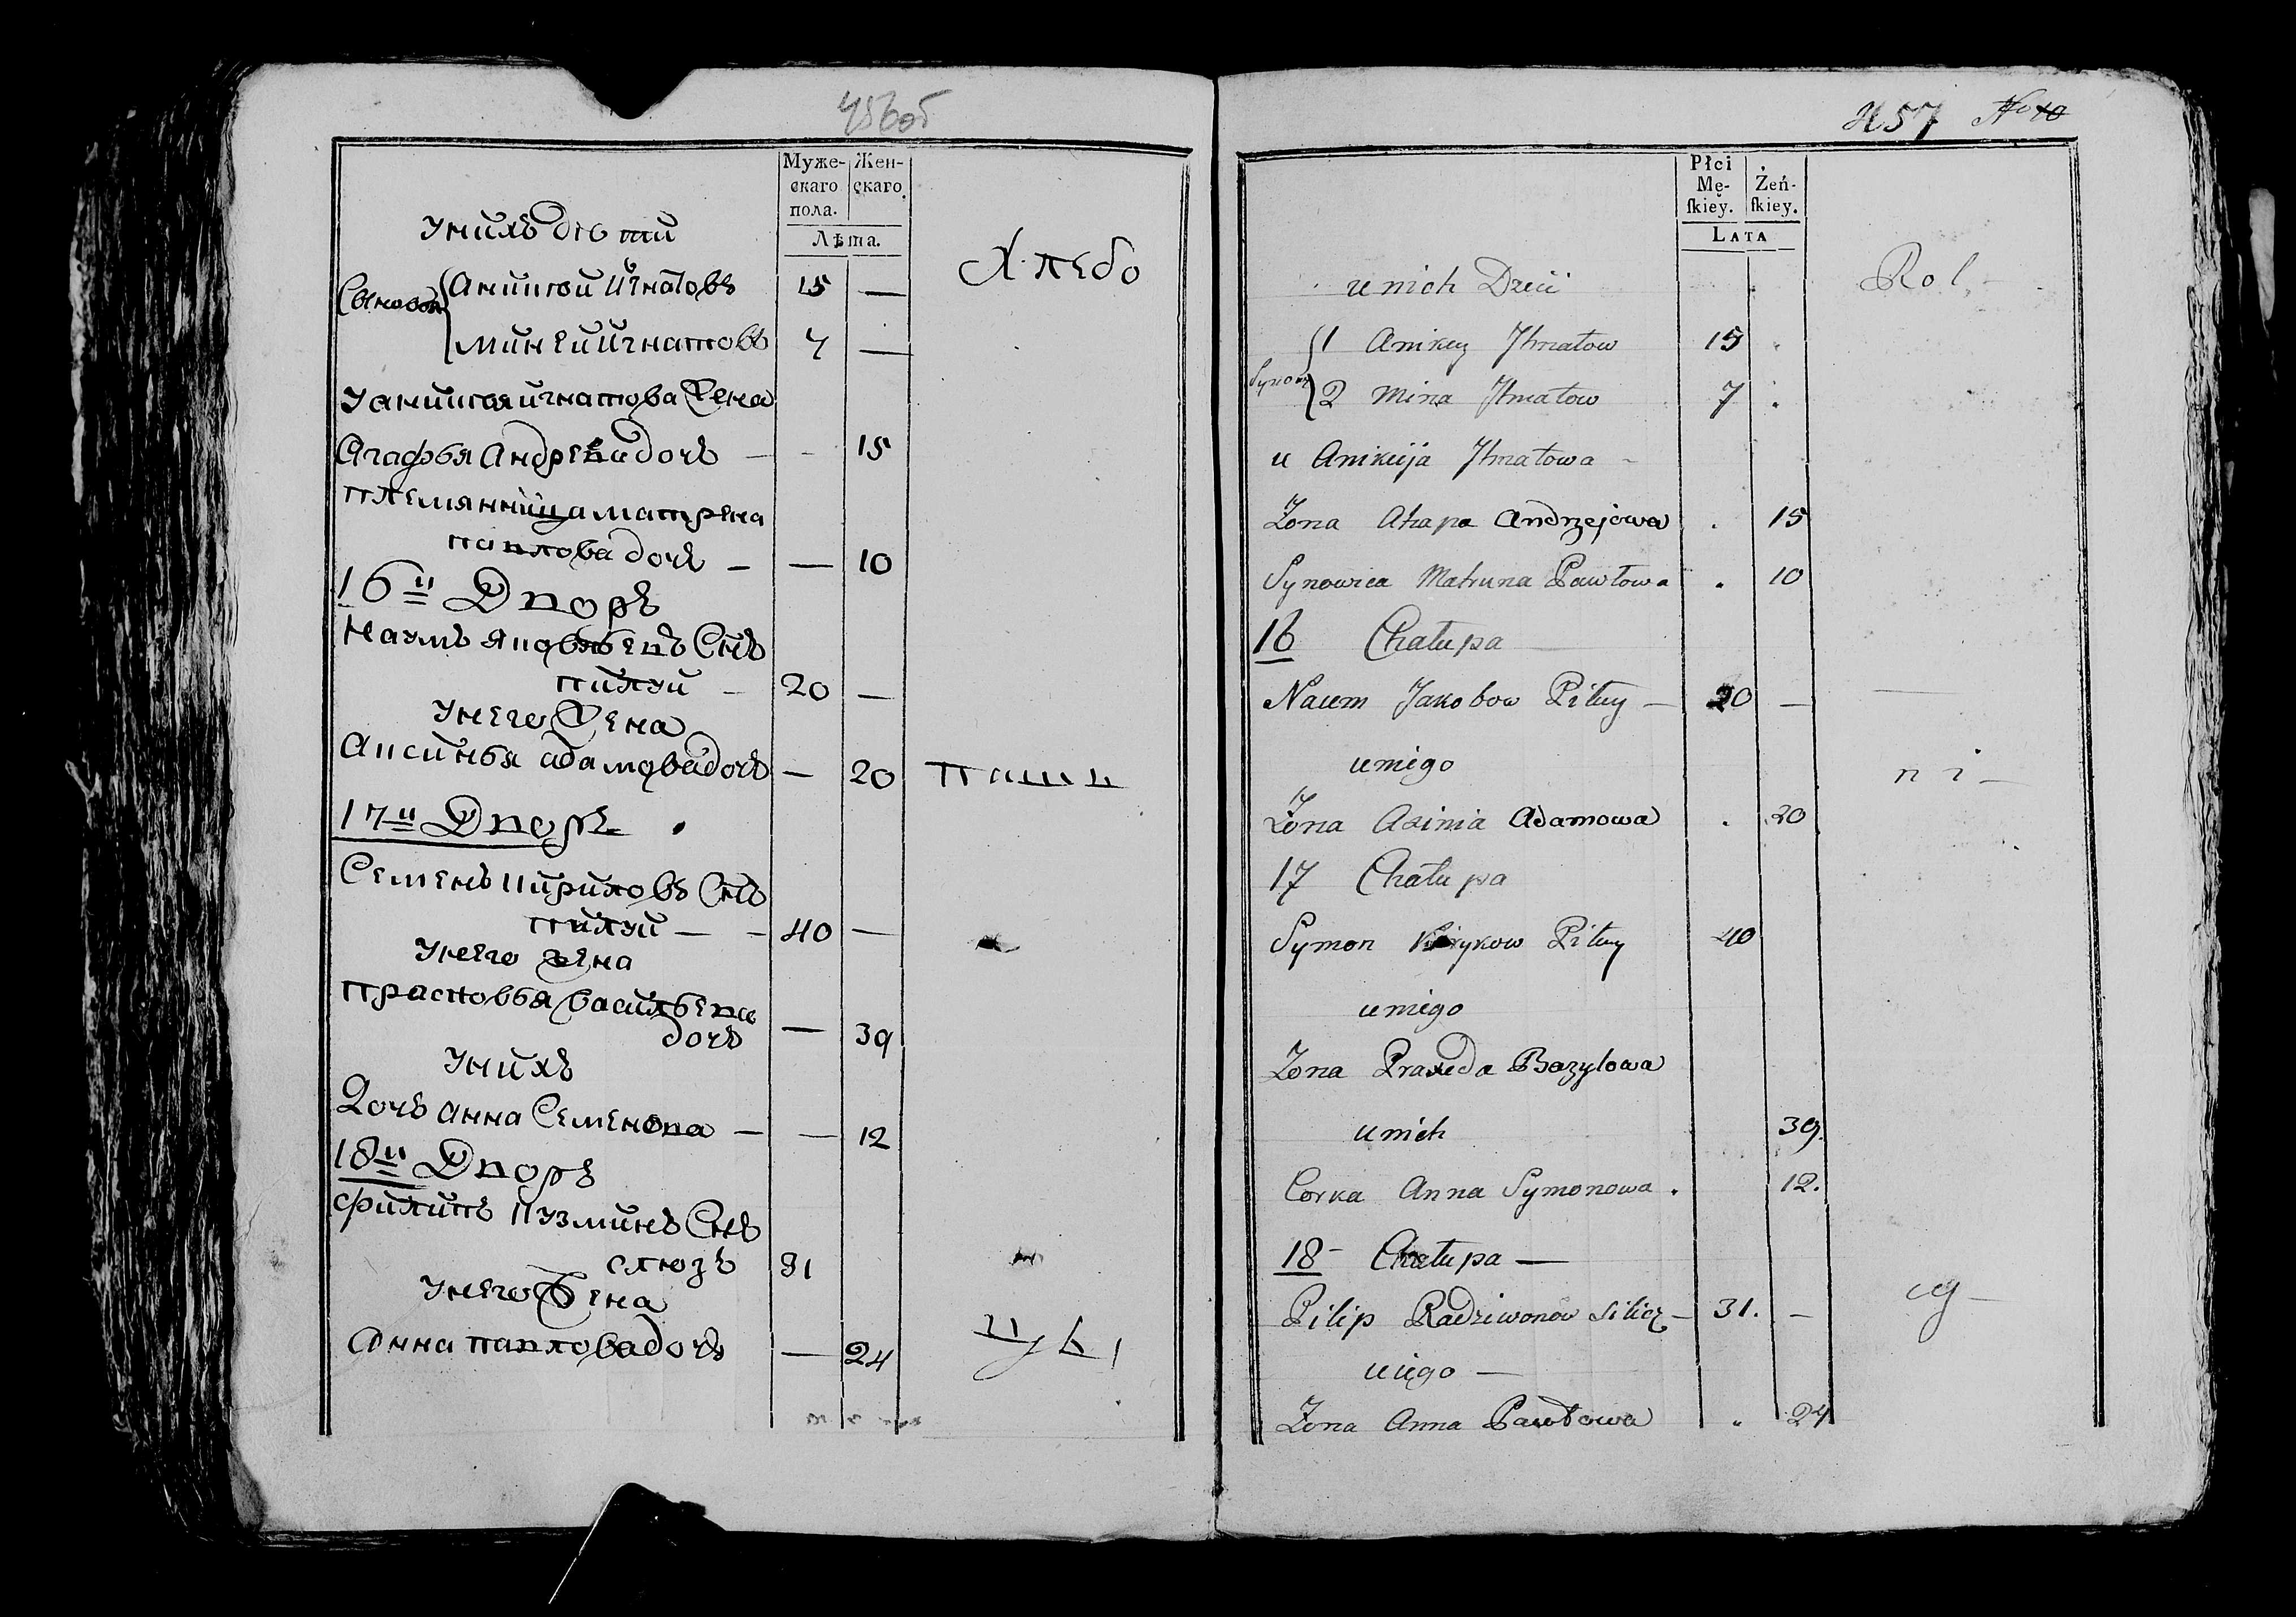 456об
Муже-
скаго
пола.
Жен-
скаго.
Лѣта.
Унихъ дѣти
Хлебо
Сыновья
Аникей Игнатовъ 15 —
Миней Игнатовъ 7 —
У аникея игнатова Жена
Агафья Андреева дочь — - 15
племянница матрена
павлова дочь — — 10
16й Дворъ
Наумъ яковлевъ Снъ
пилуй — 20 —
Унего Жена
Аксинья адамова дочь — 20
паш
17й Дворъ
Семенъ кириловъ Снъ
пилуй — — 40 —
Унего жена
прасковья васильева
дочь — 39
Унихъ
Дочь анна Семенова — — 12
18й Дворъ
филипъ кузминъ Снъ
слюзъ 31
Унего Жена
Анна павлова дочь — 24
457 No 10
Płci
Mę-
ſkiey.
Żeń-
ſkiey.
Lata
unich Dzieci
Rol,
Synow
1 Anikey Ihnatow 15
2 Mina Ihnatow 7
u Anikieja Ihnatowa -
Zona Ahapa Andrzejowa . 15
Synowica Matruna Pawłowa . 10
16 Chałupa
Naum Jakobow Piłuy — 20 —
uniego
n i —
Żona Axinia Adamowa . 20
17 Chałupa
Symon Kirykow Piłuy 40
uniego
Zona Praxeda Bazylowa
unich 39.
Corka Anna Symonowa . 12.
18 - Chałupa —
cy —
Pilip Radziwonow Silicz — 31. —
uiego —
Żona Anna Pawłowa „ 24